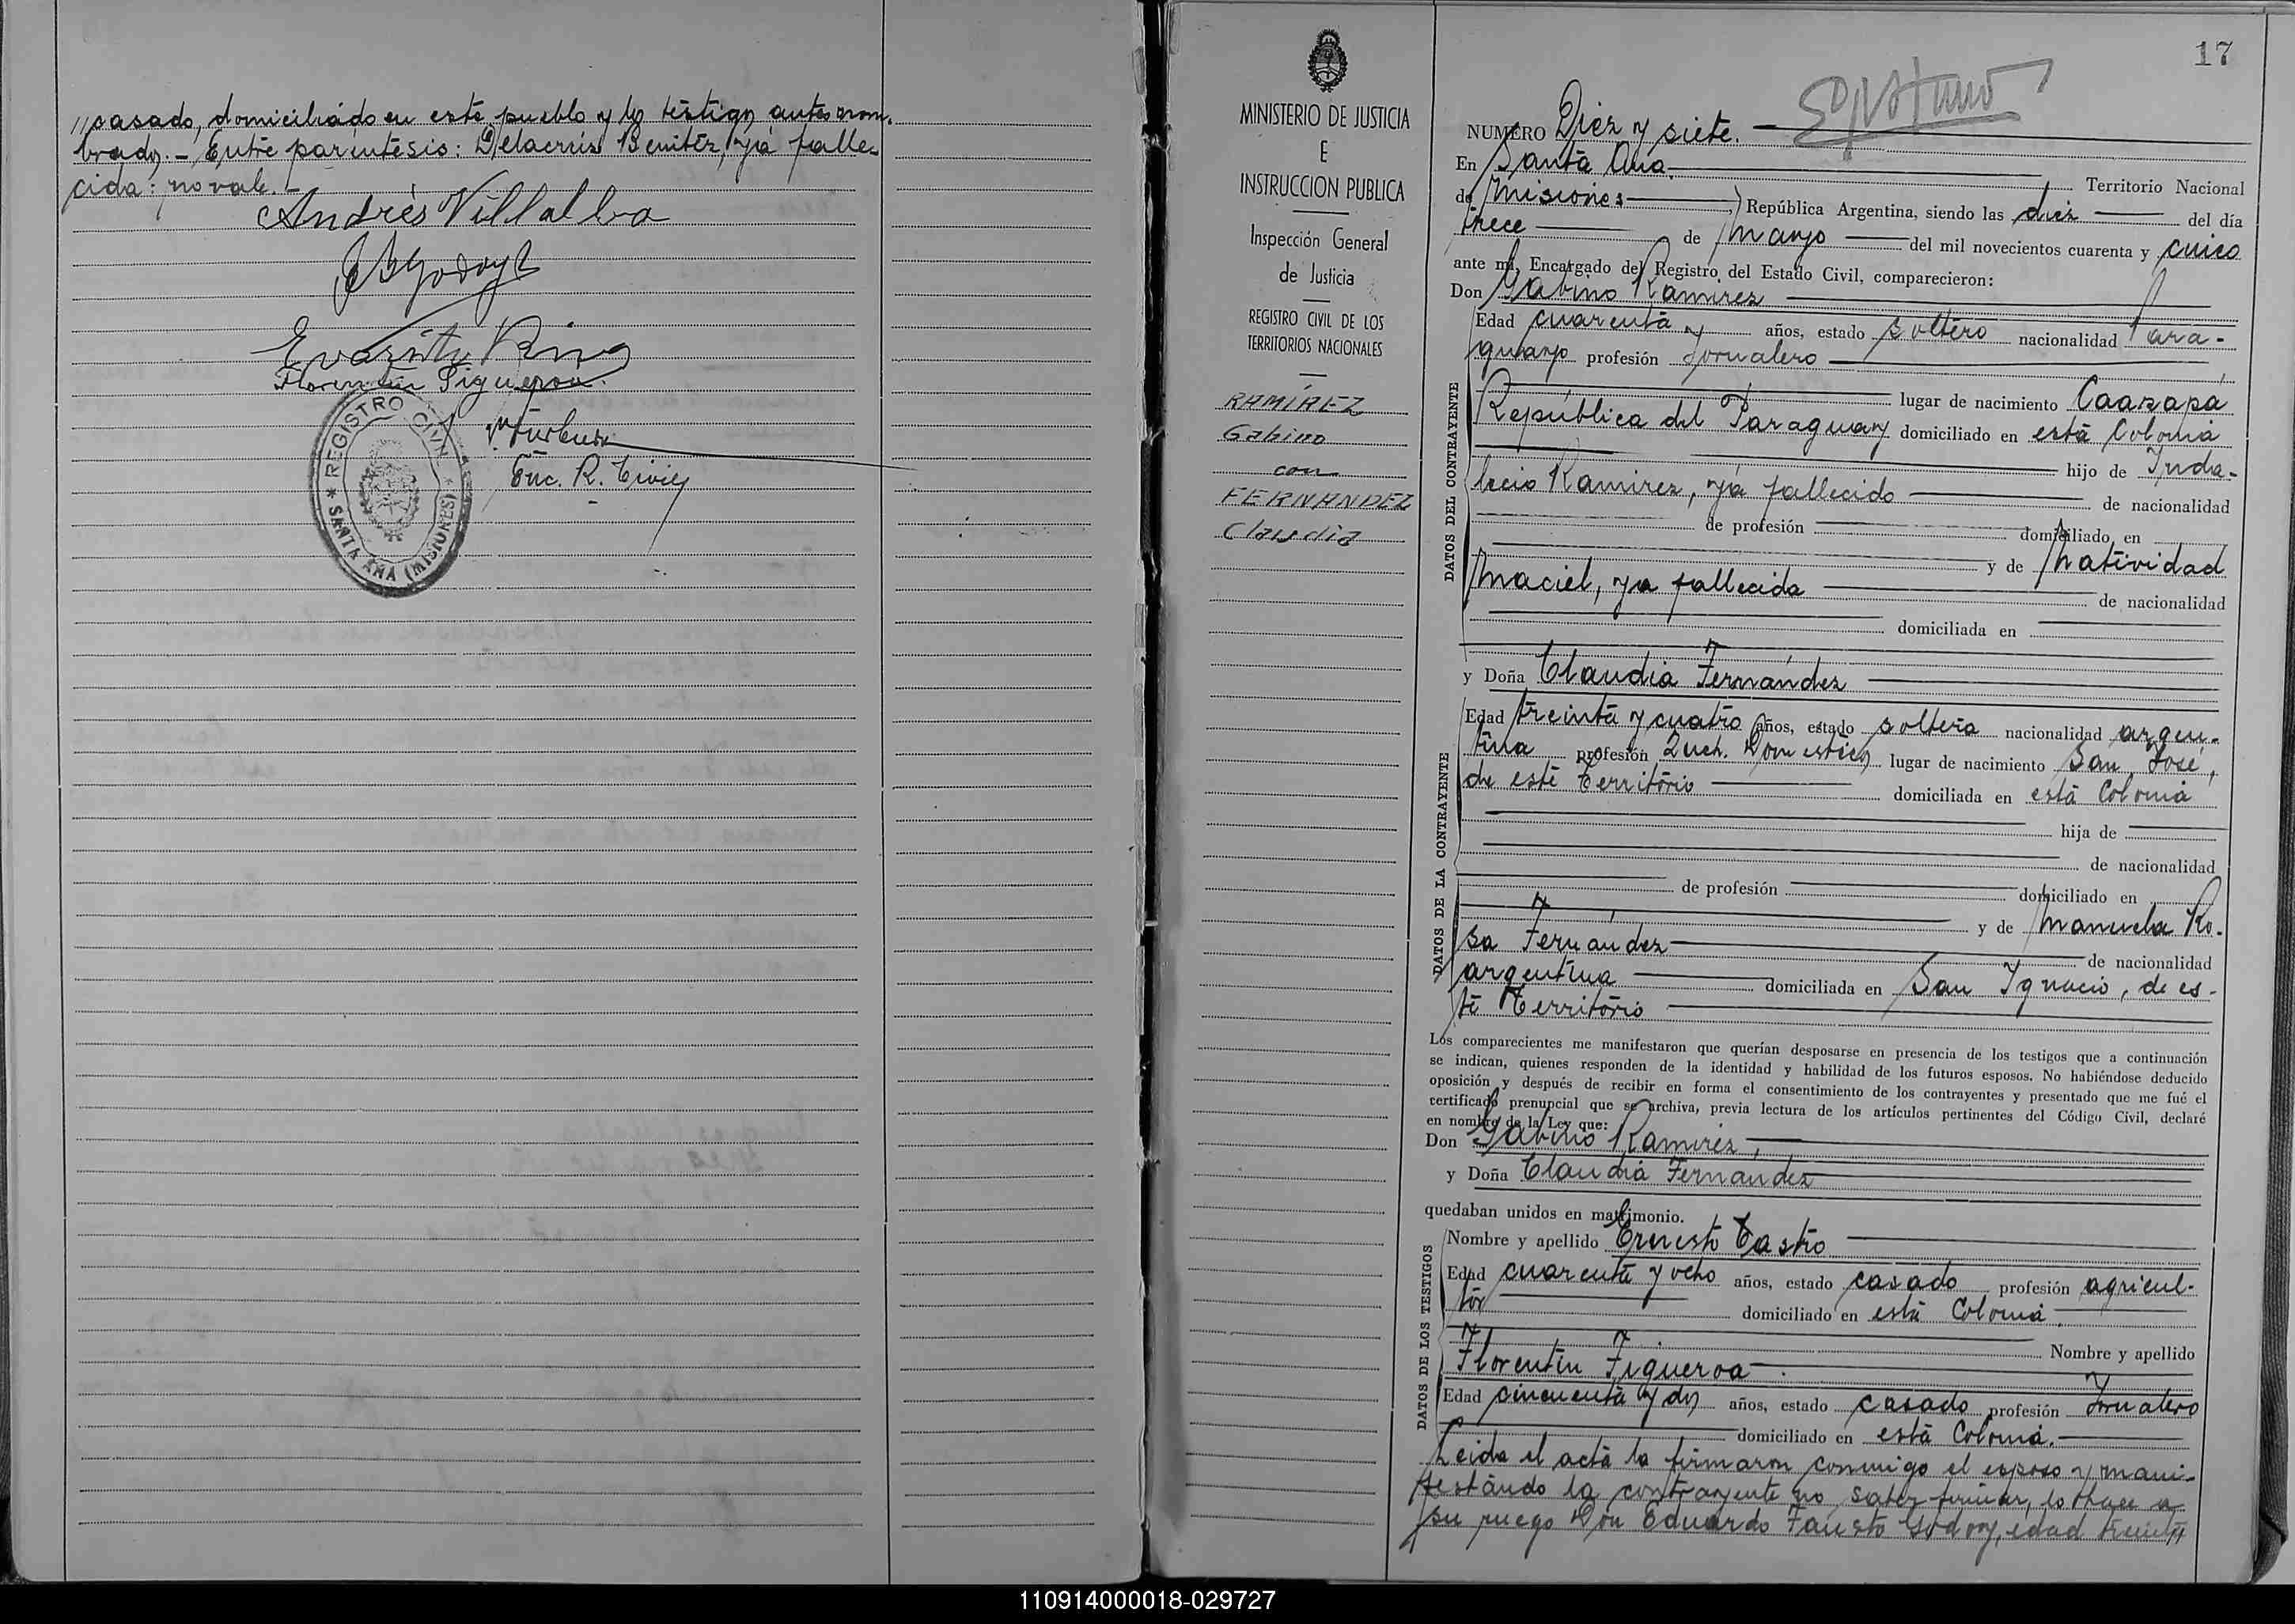 // casado, domiciliado en este pueblo y los testigos antes nom-
brados.- Entre paréntesis: Delacruz Benitez, ya falle-
cida: no vale.-
Andrés Villalba
Florentin Figueroa.
Enc. R. Civil
* REGISTRO CIVIL * SANTA ANA (MISIONES)
17
MINISTERIO DE JUSTICIA
E
INSTRUCCION PUBLICA
Inspección General
de Justicia
REGISTRO CIVIL DE LOS
TERRITORIOS NACIONALES
RAMÍREZ
Gabino
con
FERNANDEZ
Claudia
NUMERO Diez y siete.
En Santa Ana. Territorio Nacional
de Misiones República Argentina, siendo las diez del día
trece de Mayo del mil novecientos cuarenta y cinco
ante mí, Encargado del Registro del Estado Civil, comparecieron:
Don Gabino Ramirez
DATOS DEL CONTRAYENTE
Edad cuarenta y años, estado soltero nacionalidad Para-
guayo profesión Jornalero
lugar de nacimiento Caazapá
República del Paraguay domiciliado en está Colonia
hijo de Inda-
lecio Ramirez, ya fallecido de nacionalidad
de profesión domiciliado en
y de Natividad
Maciel, ya fallecida de nacionalidad
domiciliada en
y Doña Claudia Fernández
DATOS DE LA CONTRAYENTE
Edad treinta y cuatro años, estado soltera nacionalidad argen-
tina profesión Queh. Domesticos lugar de nacimiento San José,
de este Territorio domiciliada en está Colonia
hija de
de nacionalidad
de profesión domiciliado en
y de Manuela Ro-
sa Fernández de nacionalidad
argentina domiciliada en San Ignacio, de es-
te Territorio
Los comparecientes me manifestaron que querían desposarse en presencia de los testigos que a continuación
se indican, quienes responden de la identidad y habilidad de los futuros esposos. No habiéndose deducido
oposición y después de recibir en forma el consentimiento de los contrayentes y presentado que me fué el
certificado prenupcial que se archiva, previa lectura de los artículos pertinentes del Código Civil, declaré
en nombre de la Ley que:
Don Gabino Ramirez,
y Doña Claudia Fernandez
quedaban unidos en matrimonio.
DATOS DE LOS TESTIGOS
Nombre y apellido Ernesto Castro
Edad cuarenta y ocho años, estado casado profesión agricul-
tor domiciliado en está Colonia.
Nombre y apellido
Florentin Figueroa.
Edad cincuenta y dos años, estado casado profesión Jornalero
domiciliado en está Colonia.
Leida el acta la firmaron conmigo el esposo y mani-
festando la contrayente no saber firmar, lo hace a
su ruego Don Eduardo Fausto Godoy, edad treinta
110914000018-029727